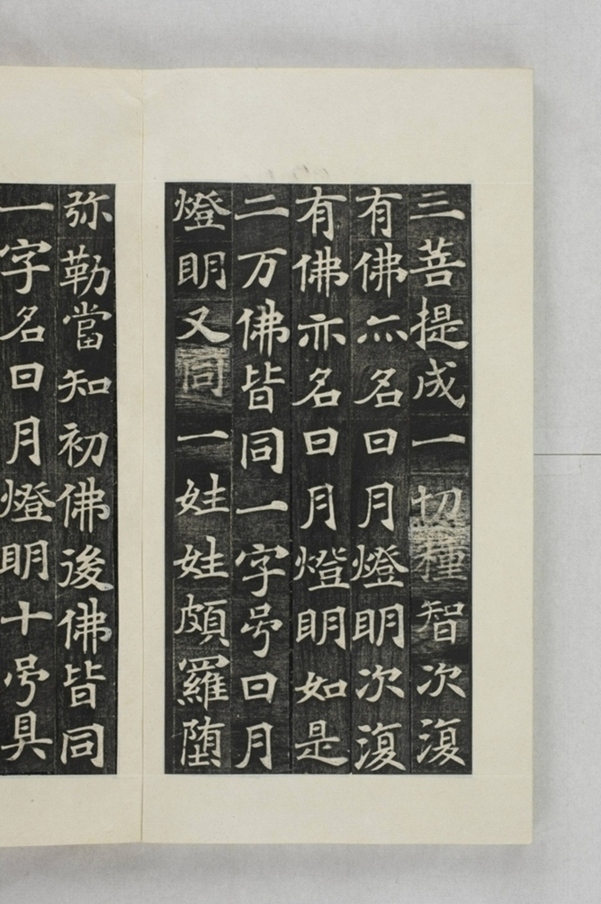 三菩提成一切種智次復
有佛亦名日月燈明次復
有佛亦名日月燈明如是
二万佛皆同一字号日月
燈明又同一姓姓頗羅堕
弥勒當知初佛後佛皆同
一字名日月燈明十号具